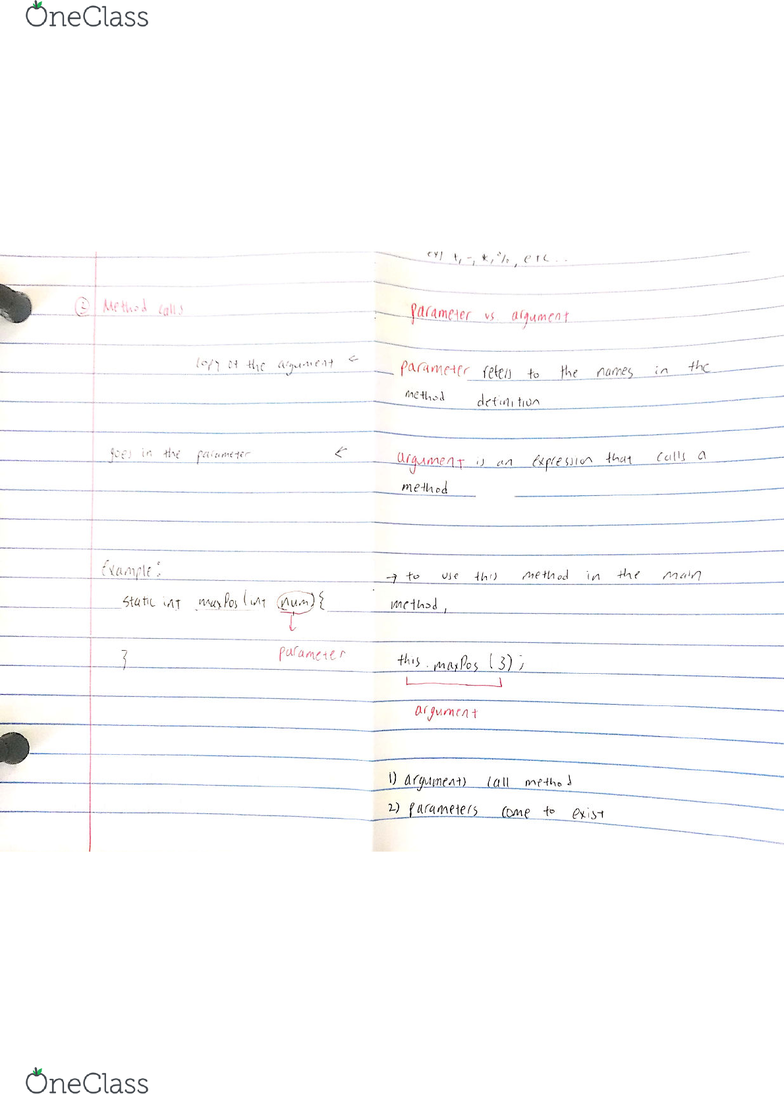 OneClass
② Method calls
copy of the argument ←
goes in the parameter ←
Example:
static int maxPos (int num) {
parameter
}
ex) +, -, *, %, etc...
parameter vs argument
parameter refers to the names in the
method definition
argument is an expression that calls a
method
→ to use this method in the main
method,
this.maxPos (3);
argument
1) arguments call method
2) parameters come to exist
OneClass